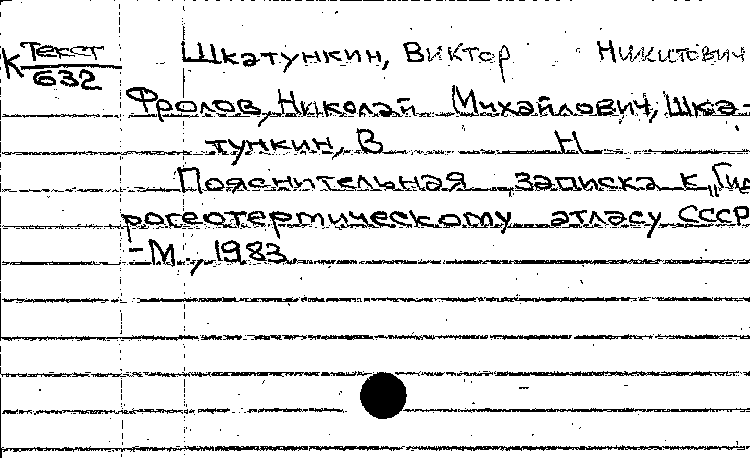 К Текст
632
Шкатункин, Виктор Никитович
Фролов, Николай Михайлович, Шка-
тункин, В Н
Пояснительная записка к „Гид
рогеотермическому атласу СССР
-М., 1983